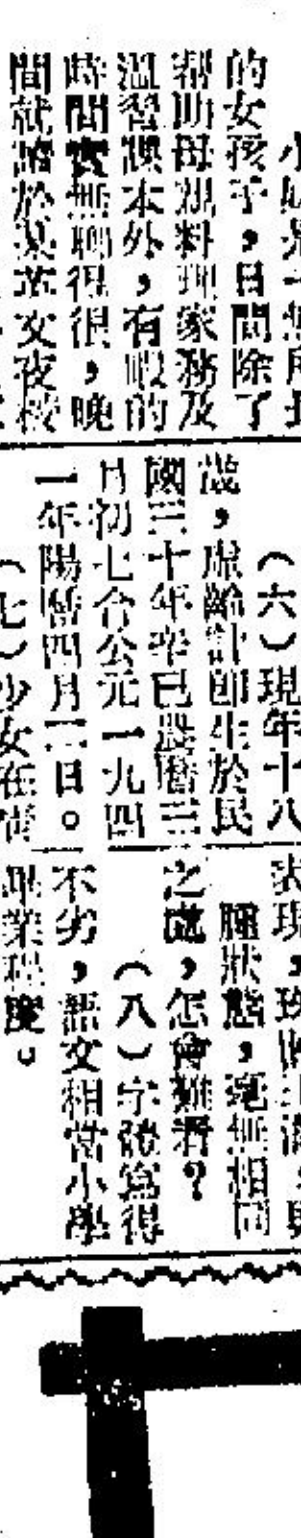 的女孩子，日間除了
幫助母親料理家務及
溫習課本外，有暇的
時間實無聊得很，晚
間就讀於某茁女夜校
（六）現年十八
歲，虛齡計即生於民
國三十年辛巳農曆三
月初七合公元一九四
一年陽曆四月二日。
（七）少女在
腫狀態，毫無相同
之處，怎會難看？
（八）字體寫得
不劣，語文相當小學
畢業程度。